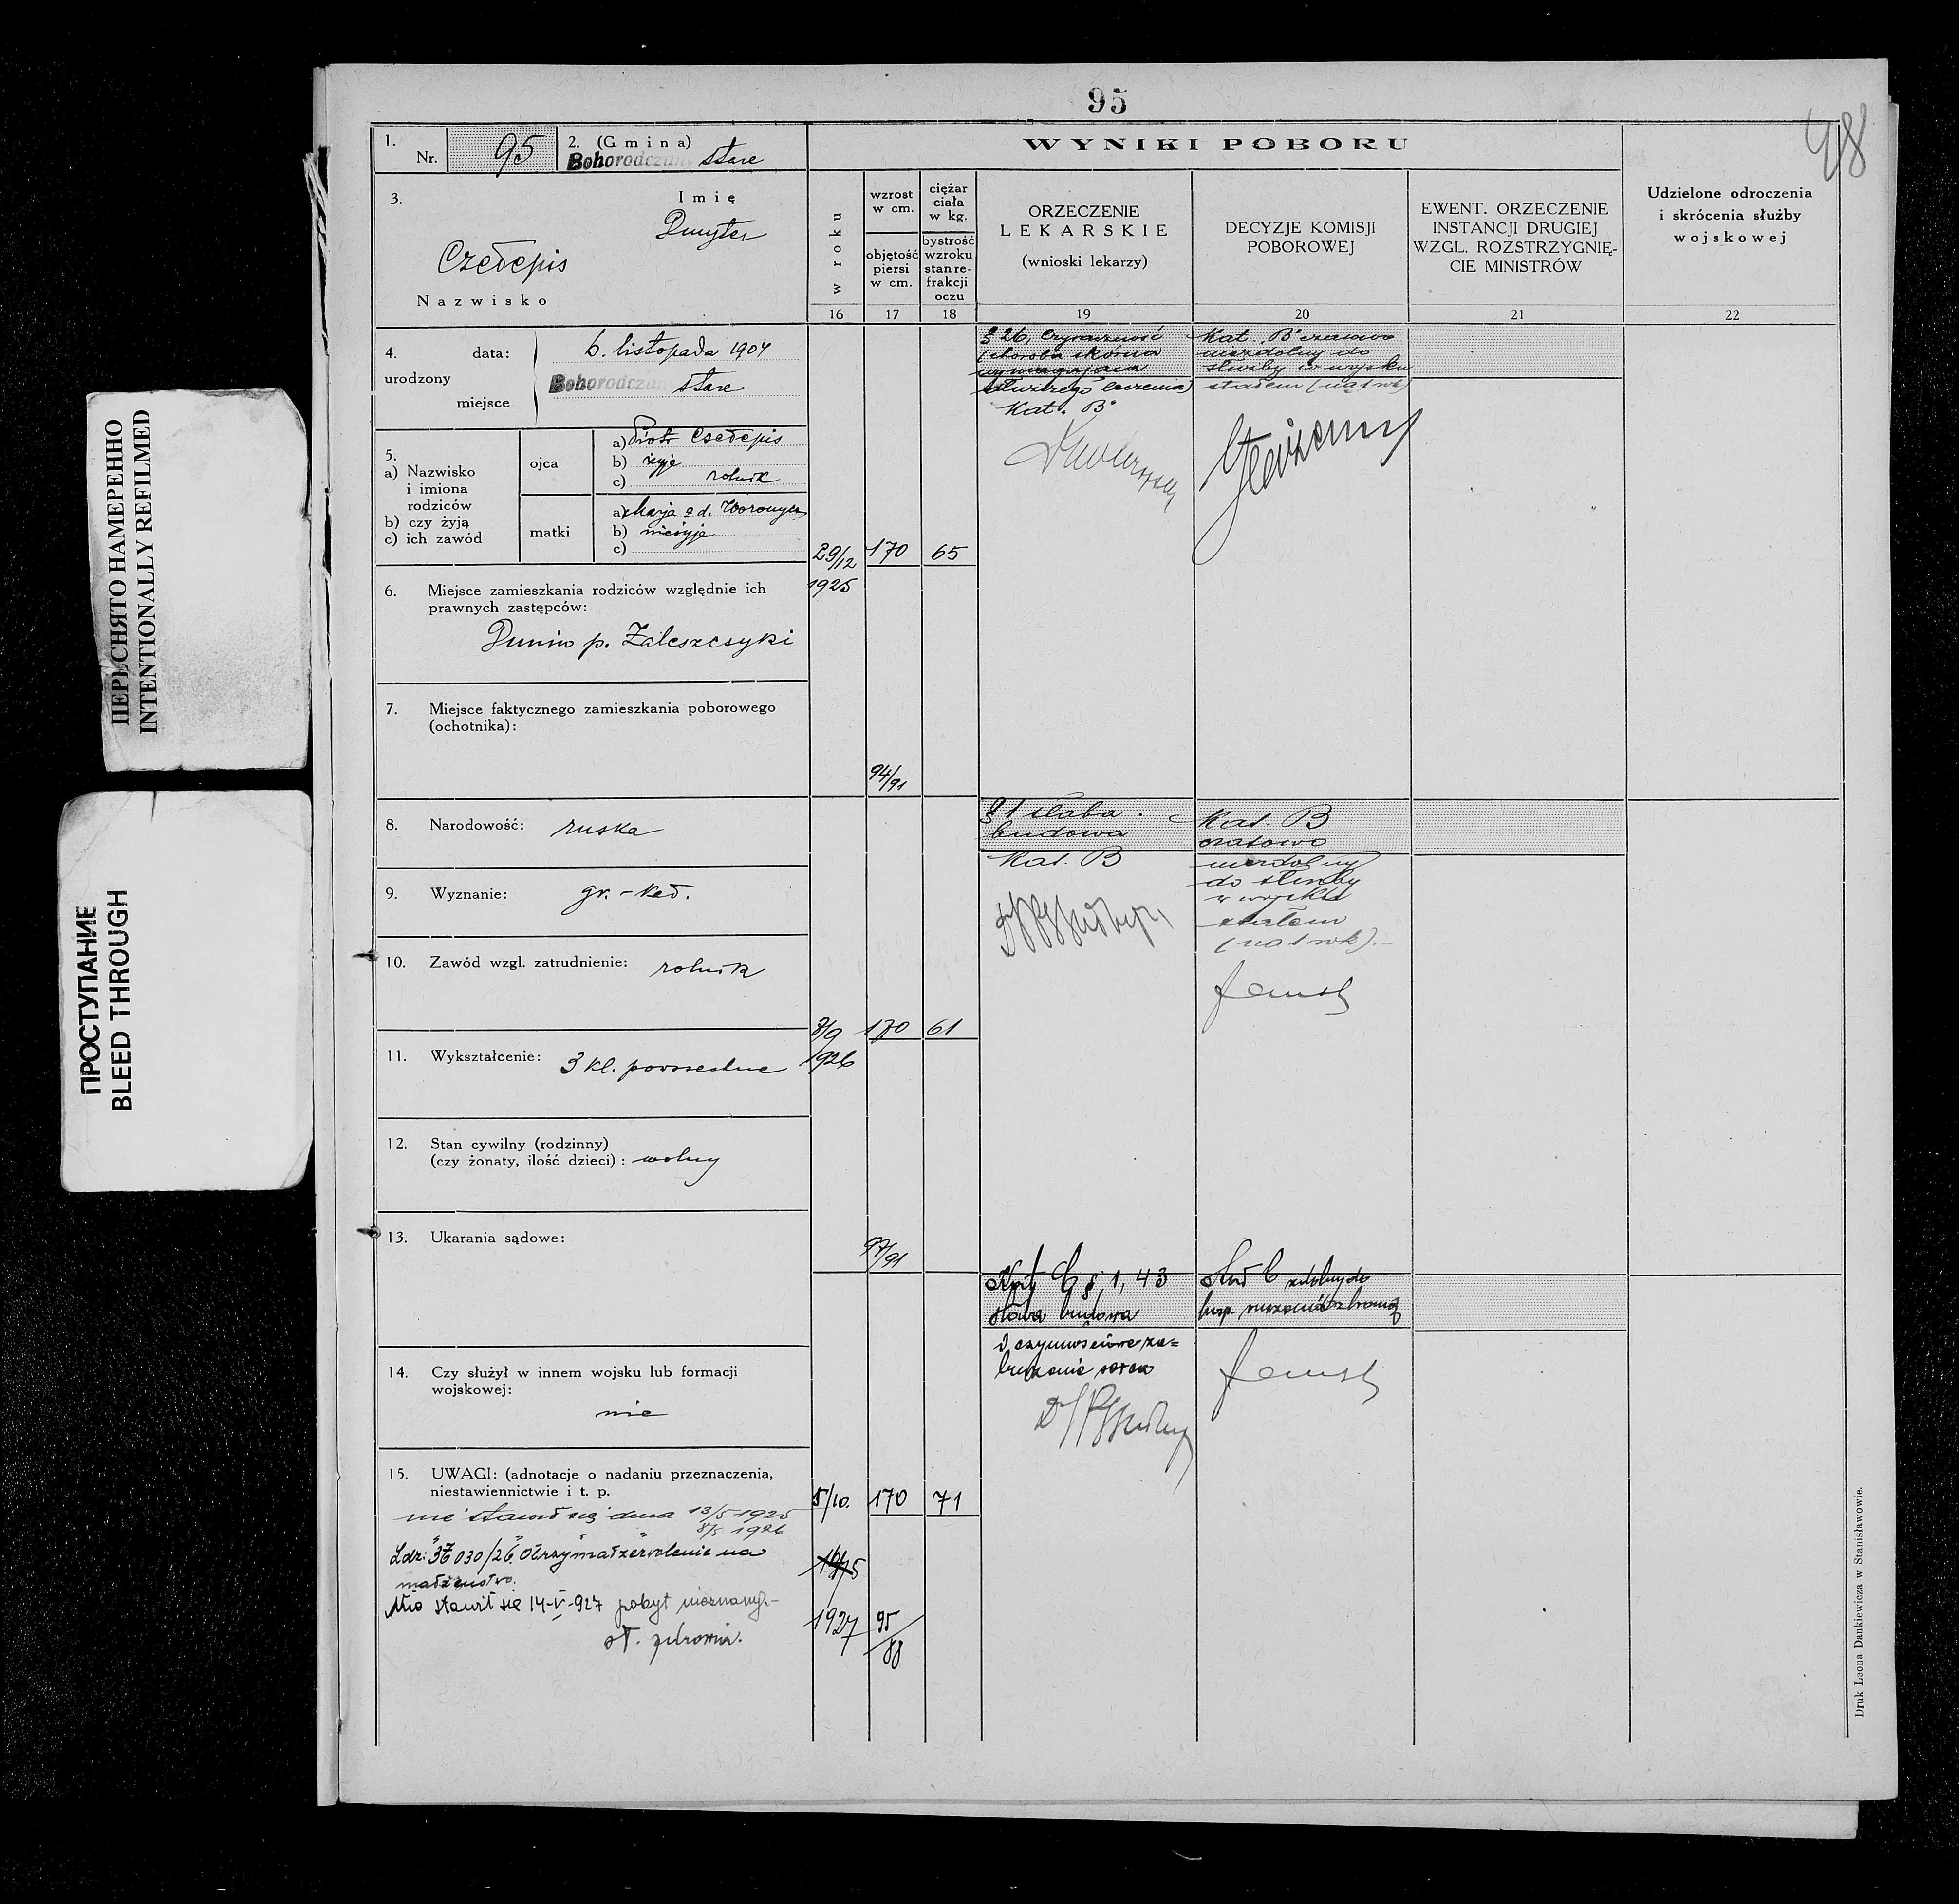 ПЕРЕСНЯТО НАМЕРЕННО
INTENTIONALLY REFILMED
ПРОСТУПАНИЕ
BLEED THROUGH
95
48
1. Nr. 95
2. (Gmina)
Bohorodczany stare
3. Imię
Dmyter
Czełepis
Nazwisko
4. urodzony
data: 6. listopada 1904
miejsce Bohorodczany stare
5.
a) Nazwisko
i imiona
rodziców
b) czy żyją
c) ich zawód
ojca
a) Piotr Czełepis
b) żyje
c) rolnik
matki
a) Marja z d.
b) nieżyje
c)
6. Miejsce zamieszkania rodziców względnie ich
prawnych zastępców:
p. Zaleszczyki
7. Miejsce faktycznego zamieszkania poborowego
(ochotnika):
8. Narodowość: ruska
9. Wyznanie: gr.-kat.
10. Zawód wzgl. zatrudnienie: rolnik
11. Wykształcenie: 3 kl. powszechne
12. Stan cywilny (rodzinny)
(czy żonaty, ilość dzieci): wolny
13. Ukarania sądowe:
14. Czy służył w innem wojsku lub formacji
wojskowej:
nie
15. UWAGI: (adnotacje o nadaniu przeznaczenia,
niestawiennictwie i t. p.
nie stawił się dnia 13/5 1925
" " " " 8/5 1926
Ldz: 36030/26. Otrzymał zezwolenie na
małżeństwo.
Nie stawił się 14-V-927 pobyt nieznany.-
WYNIKI POBORU
w roku
16
wzrost
w cm.
objętość
piersi
w cm.
17
ciężar
ciała
w kg.
bystrość
wzroku
stan re-
frakcji
oczu
18
ORZECZENIE
LEKARSKIE
(wnioski lekarzy)
19
DECYZJE KOMISJI
POBOROWEJ
20
EWENT. ORZECZENIE
INSTANCJI DRUGIEJ
WZGL. ROZSTRZYGNIĘ-
CIE MINISTRÓW
21
Udzielone odroczenia
i skrócenia służby
wojskowej
22
29/12 170 65
1925
94/91
§ 26,
(choroba skórna
wymagająca
dłuższego leczenia)
Kat. B"
Kat. „B" czasowo
niezdolny do
służby w wojsku
stałem (na 1 rok)
7/9 170 61
1926
97/91
§ 1 słaba
budowa
Kat. B
Kat. B
czasowo
niezdolny
do służby
w wojsku
stałem
(na 1 rok).-
5/10. 170 71
1927 95/88
Kat. C § 1, 43
słaba budowa
i czynnościowe za-
burzenie serca
Kat C zdolny do
posp. ruszenia z bronią
Druk Leona Dankiewicza w Stanisławowie.